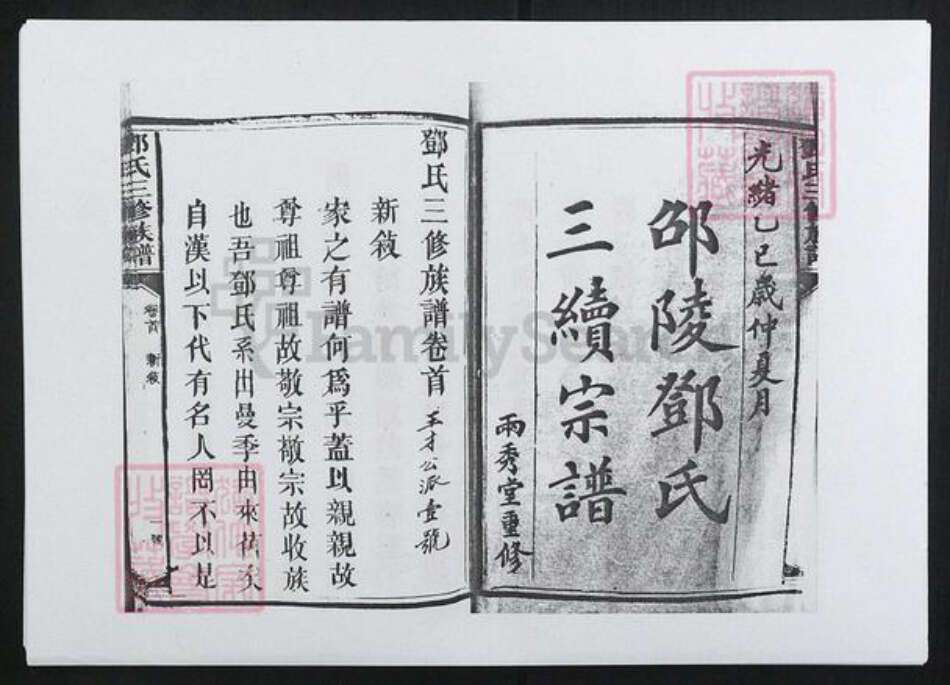 光緒乙巳歲仲夏月
邵陵鄧氏
三續宗譜
兩秀堂重修
鄧氏三修族譜卷首
王才公派壹號
新敘
家之有譜何爲乎蓋以親親故
尊祖尊祖故敬宗敬宗故收族
也吾鄧氏系出曼季由來舊矣
自漢以下代有名人罔不以是
鄧氏三修族譜
卷首
新敘
一號
FamilySearch